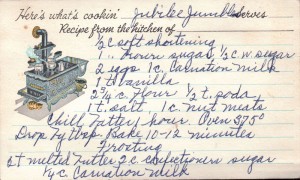 Here's what's cookin' Jubilee Jumbles Serves
Recipe from the kitchen of
1/2 c soft shortening
1 c. brown sugar 1/2 c w. sugar
2 eggs 1 c. Carnation Milk
1 t vanilla
2 3/4 c flour 1/2 t. soda
1 t. salt 1 c. nut meats
Chill batter 1 hour. Oven 375°
Drop by tbsp. Bake 10-12 minutes
Frosting
melted butter 2 c confectioners sugar
1/4 c. Carnation milk